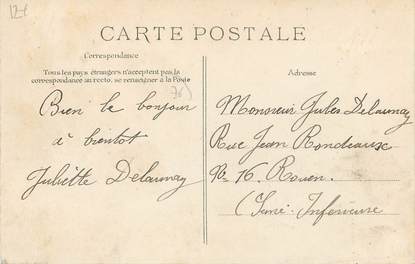 12-f
CARTE POSTALE
Correspondance
Tous les pays étrangers n'acceptent pas la
correspondance au recto, se renseigner à la Poste
Adresse
76)
Bien le bonjour
à bientot
Juliette Delaunay
Monsieur Jules Delaunay
Rue Jean Rondeaux
No 76 Rouen
(Seine Inferieure